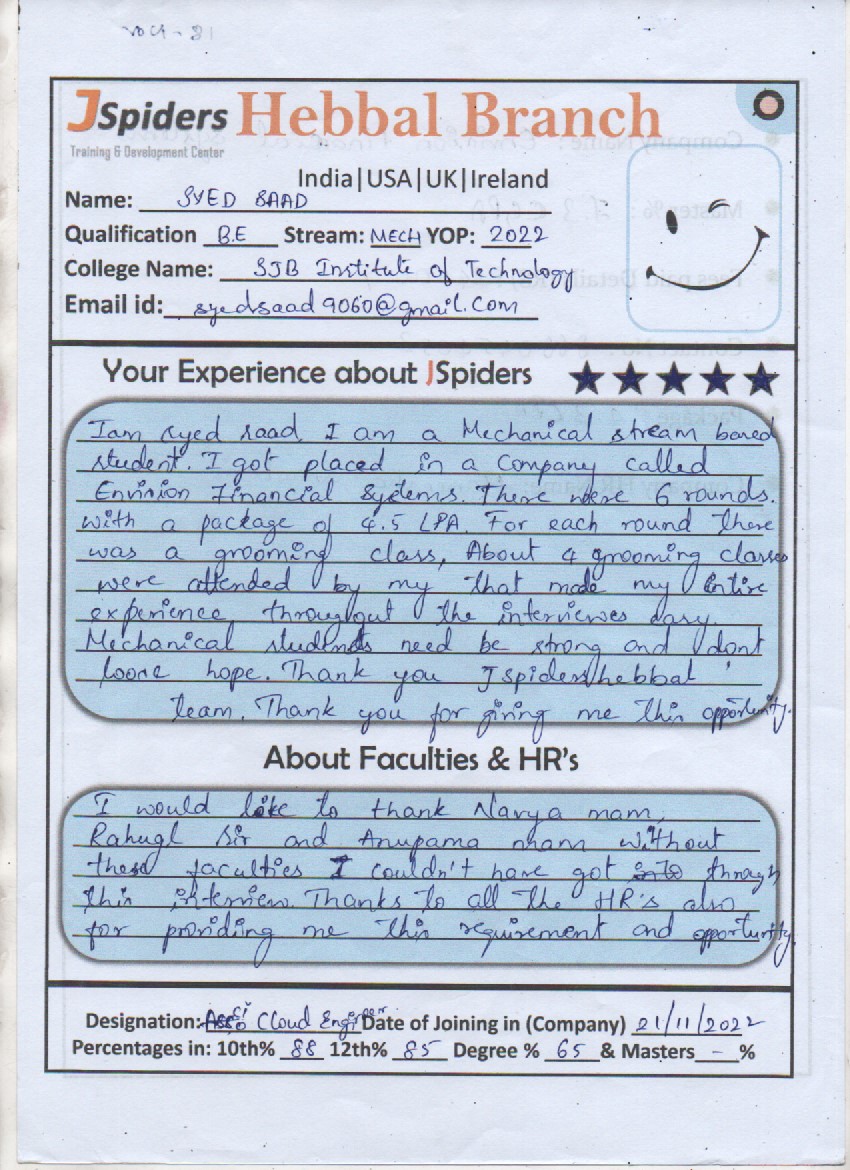 JSpiders Hebbal Branch
Training & Development Center
India|USA|UK|Ireland
Name: SYED SAAD
Qualification B.E Stream: MECH YOP: 2022
College Name: SJB Institute of Technology
Email id: syedsaad9060@gmail.com
Your Experience about JSpiders
I am syed saad. I am a Mechanical stream based
student. I got placed in a company called
Envision Financial Systems. There were 6 rounds.
with a package of 4.5 LPA. For each round there
was a grooming class, About 4 grooming classes
were attended by my that made my entire
experience throughout the interviewes easy.
Mechanical students need be strong and dont
loose hope. Thank you Jspiders hebbal
team. Thank you for giving me this opportunity.
About Faculties & HR's
I would like to thank Navya mam,
Rahugl sir and Anupama mam without
these faculties I couldn't have got into through
this interview. Thanks to all the HR's also
for providing me this requirement and opportunity.
Designation: Cloud Engineer Date of Joining in (Company) 21/11/2022
Percentages in: 10th% 88 12th% 85 Degree % 65 & Masters - %